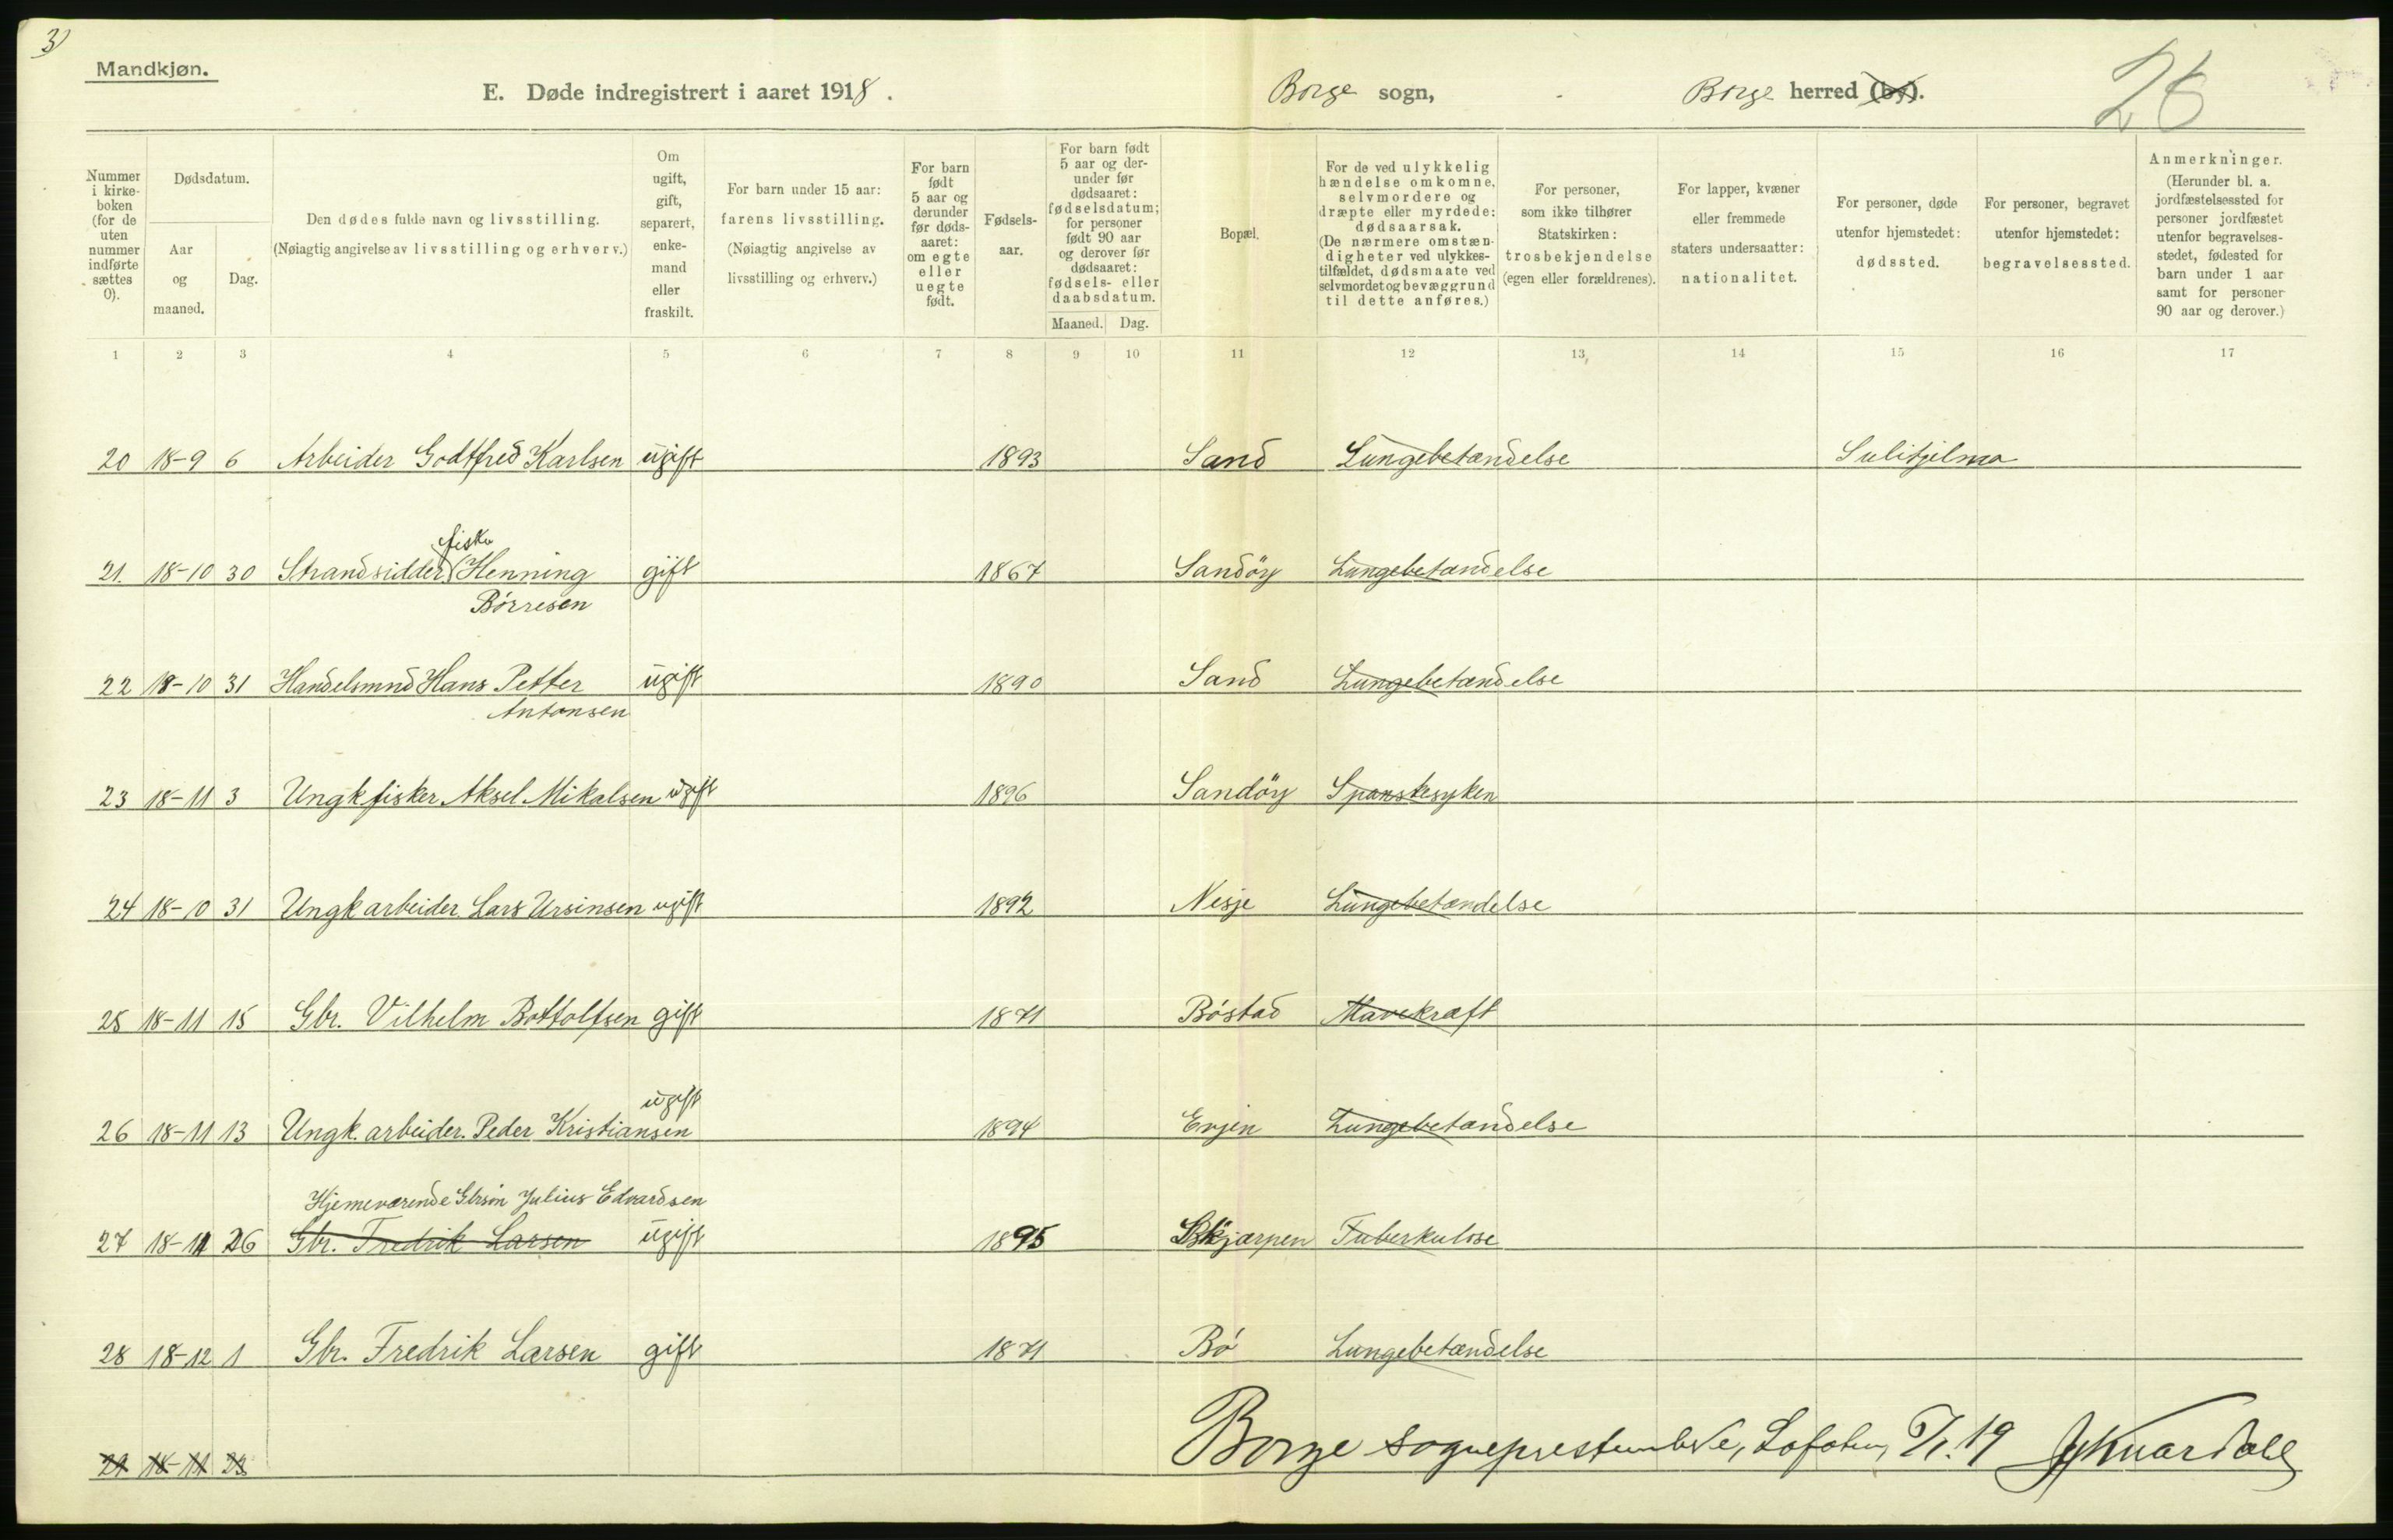 3)
Mandkjøn.
E. Døde indregistrert i aaret 1918. Borge sogn, Borge herred (by).
26
Nummer i kirkeboken (for de uten nummer indførte sættes 0).
Dødsdatum.
Aar og maaned.
Dag.
Den dødes fulde navn og livsstilling.
(Nøiagtig angivelse av livsstilling og erhverv.)
Om ugift, gift, separert, enkemand eller fraskilt.
For barn under 15 aar:
farens livsstilling.
(Nøiagtig angivelse av livsstilling og erhverv.)
For barn født 5 aar og derunder før dødsaaret: om egte eller uegte født.
Fødselsaar.
For barn født 5 aar og derunder før dødsaaret: fødselsdatum; for personer født 90 aar og derover før dødsaaret: fødsels- eller daabsdatum.
Maaned. Dag.
Bopæl.
For de ved ulykkelig hændelse omkomne, selvmordere og dræpte eller myrdede: dødsaarsak. (De nærmere omstændigheter ved ulykkestilfældet, dødsmaate ved selvmordet og bevæggrund til dette anføres.)
For personer, som ikke tilhører Statskirken: trosbekjendelse (egen eller forældrenes).
For lapper, kvæner eller fremmede staters undersaatter: nationalitet.
For personer, døde utenfor hjemstedet: dødssted.
For personer, begravet utenfor hjemstedet: begravelsessted.
Anmerkninger. (Herunder bl. a. jordfæstelsessted for personer jordfæstet utenfor begravelsesstedet, fødested for barn under 1 aar samt for personer 90 aar og derover.)
1 2 3 4 5 6 7 8 9 10 11 12 13 14 15 16 17
20 18-9 6 Arbeider Godtfred Karlsen ugift 1893 Sand Lungebetændelse Sulitjelma
fisker
21. 18-10 30 Strandsidder Henning gift 1867 Sandöy Lungebetændelse
Börresen
22 18-10 31 Handelsmnd Hans Petter ugift 1890 Sand Lungebetændelse
Antonsen
23 18-11 3 Ungk fisker Aksel Mikalsen ugift 1896 Sandöy Spanskesyken
24 18-10 31 Ungk arbeider Lars Ursinsen ugift 1892 Nesje Lungebetændelse
25 18-11 15 Gbr. Vilhelm Bottolfsen gift 1871 Böstad Mavekræft
ugift
26 18-11 13 Ungk. arbeider. Peder Kristiansen 1894 Evjen Lungebetændelse
Hjemeværende Gbrsön Julius Edvardsen
27 18-11 26 Gbr. Fredrik Larsen ugift 1895 Skjærpen Tuberkulose
28 18-12 1 Gbr. Fredrik Larsen gift 1871 Bö Lungebetændelse
29 18-11 23
Borge sogneprestembede, Lofoten, 19